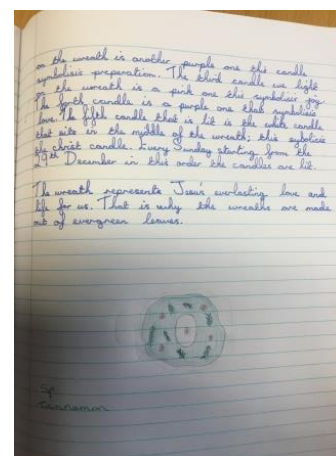 on the wreath is another purple one this candle
symbolisis preparation. The third candle we light
on the wreath is a pink one this symbolises joy
The forth candle is a purple one that symbolisis
love. The fifth candle that is lit is the white candle
that sits in the middle of the wreath; this symbolises
the christ candle. Every Sunday starting from the
29th December in this order the candles are lit.
The wreath represents Jesus' everlasting love and
life for us. That is why the wreaths are made
out of evergreen leaves.
Sp
cinnamon